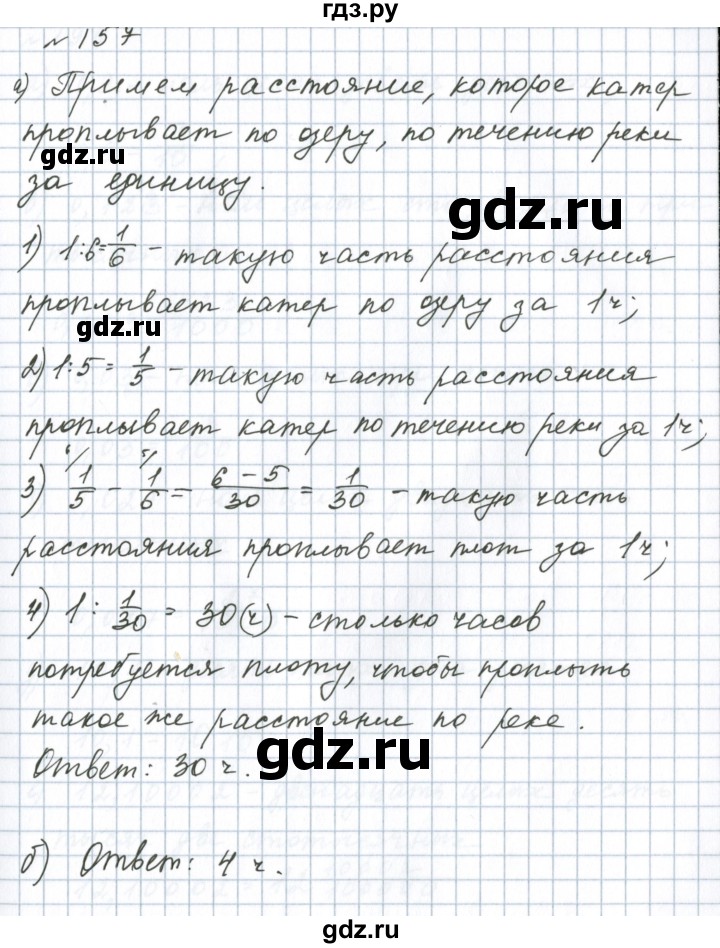 гдз.ру
№ 157
а) Примем расстояние, которое катер
проплывает по озеру, по течению реки
gdz.ru
за единицу.
gdz.ru
1) 1:6=1/6 - такую часть расстояния
проплывает катер по озеру за 1ч;
gdz.ru
2) 1:5=1/5 - такую часть расстояния
проплывает катер по течению реки за 1ч;
3) 6/ 1/5 - 5/ 1/6 = 6-5/30 = 1/30 - такую часть
расстояния проплывает плот за 1ч;
4) 1 : 1/30 = 30(ч) - столько часов
потребуется плоту, чтобы проплыть
такое же расстояние по реке.
gdz.ru
Ответ: 30 ч.
б) Ответ: 4 ч.
gdz.ru